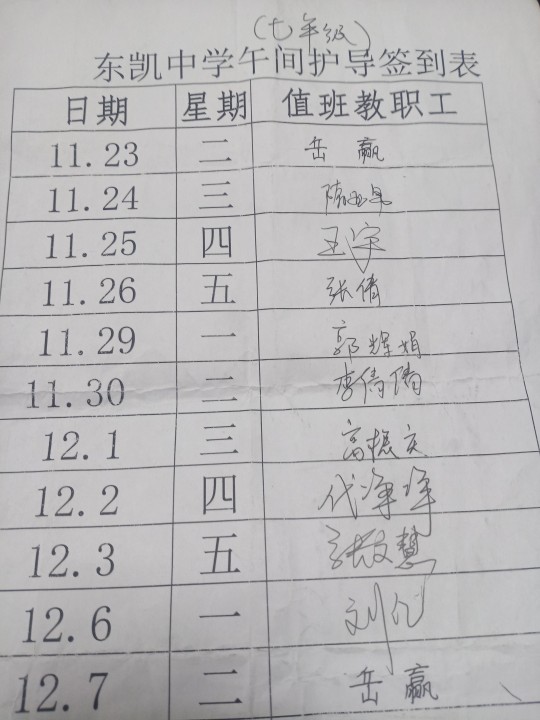 (七年级)
东凯中学午间护导签到表
日期 星期 值班教职工
11.23 二 岳赢
11.24 三 陈
11.25 四 王宇
11.26 五 张倩
11.29 一 郭辉娟
11.30 二 唐倩
12.1 三 高振庆
12.2 四 代净净
12.3 五 张慧
12.6 一 刘
12.7 二 岳赢